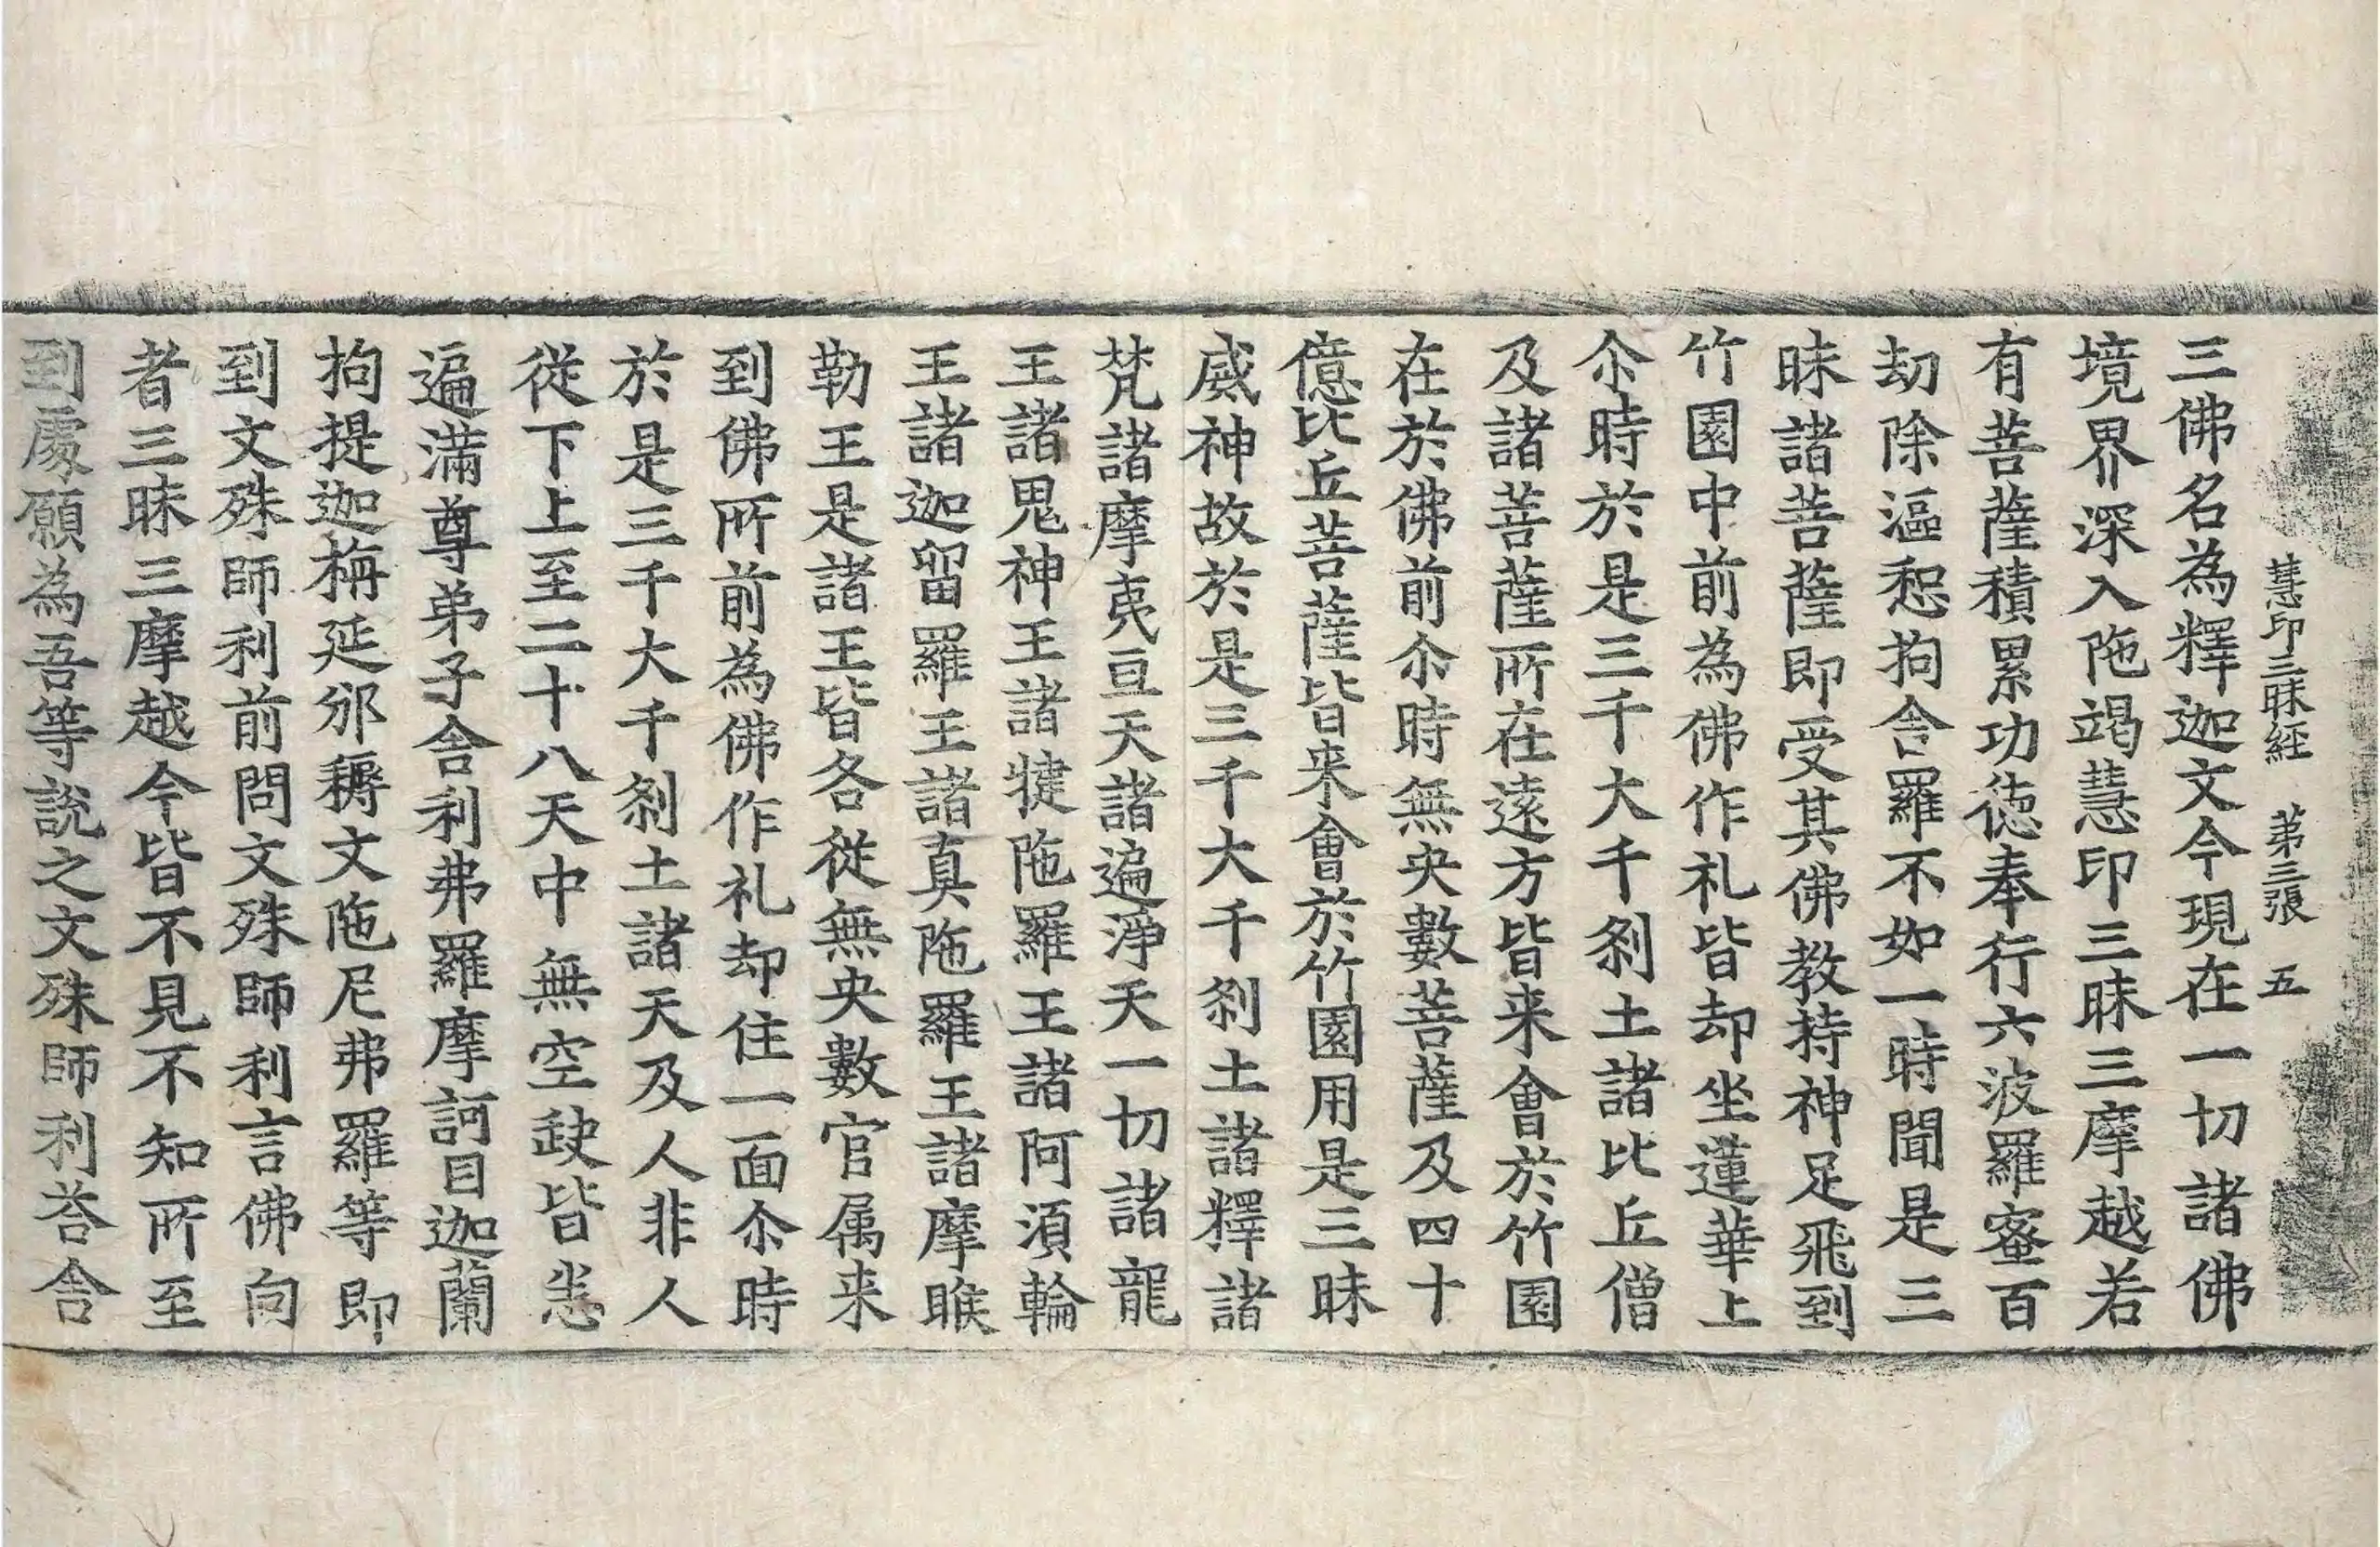 慧印三昧経 第三張 五
三佛名為釋迦文今現在一切諸佛
境界深入陁竭慧印三昧三摩越若
有菩薩積累功徳奉行六波羅蜜百
劫除漚惒拘舍羅不如一時聞是三
昧諸菩薩即受其佛教持神足飛到
竹園中前為佛作礼皆却坐蓮華上
尒時於是三千大千刹土諸比丘僧
及諸菩薩所在遠方皆来會於竹園
在於佛前尒時無央數菩薩及四十
億比丘菩薩皆来會於竹園用是三昧
威神故於是三千大千刹土諸釋諸
梵諸摩夷亘天諸遍淨天一切諸龍
王諸鬼神王諸揵陁羅王諸阿須輪
王諸迦留羅王諸真陁羅王諸摩睺
勒王是諸王皆各從無央數官属来
到佛所前為佛作礼却住一面尒時
於是三千大千刹土諸天及人非人
從下上至二十八天中無空缺皆悉
遍滿尊弟子舎利弗羅摩訶目迦蘭
拘提迦栴延邠耨文陁尼弗羅等即
到文殊師利前問文殊師利言佛向
者三昧三摩越今皆不見不知所至
到處願為吾等說之文殊師利荅舎